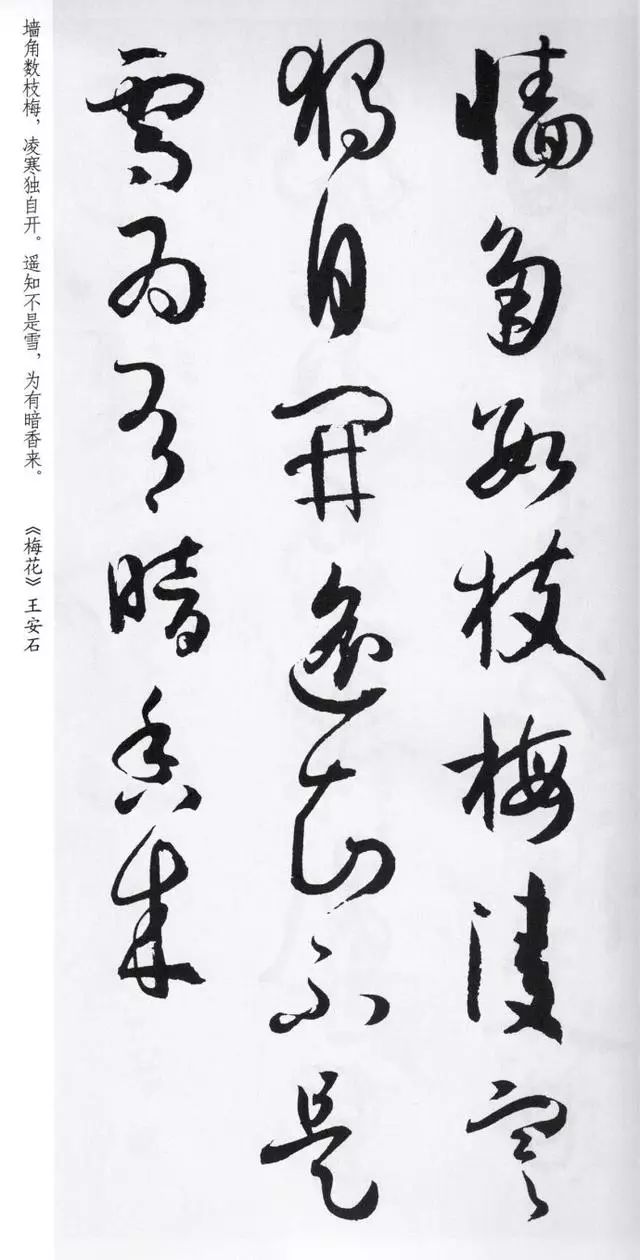 墙角数枝梅凌寒
独自开遥知不是
雪为有暗香来
墙角数枝梅，凌寒独自开。遥知不是雪，为有暗香来。
《梅花》王安石